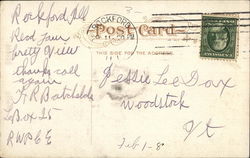 Rockford, Ill
Recd your
pretty view
thanks call
again
F R Batchelder
Box 25
ROCKFORD
Post Card
THIS SIDE FOR THE ADDRESS
Jessie Lee Dow
Woodstock
Vt
Feb 1-8